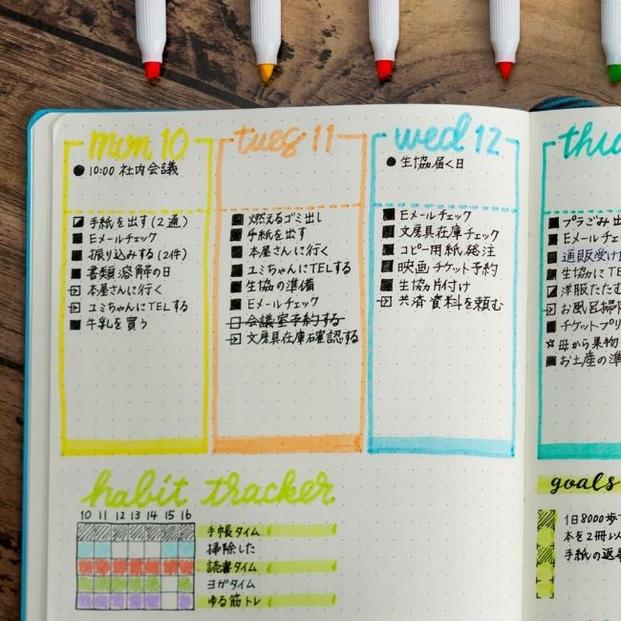 mon 10
● 10:00 社内会議
手紙を出す(2通)
Eメールチェック
振り込みする(2件)
書類溶解の日
本屋さんに行く
ユミちゃんにTELする
牛乳を買う
tues 11
燃えるゴミ出し
手紙を出す
本屋さんに行く
ユミちゃんにTELする
生協の準備
Eメールチェック
会議室予約する
文房具在庫確認する
wed 12
● 生協届く日
Eメールチェック
文房具在庫チェック
コピー用紙発注
映画チケット予約
生協片付け
共済資料を頼む
thu
プラごみ出
Eメールチェ
通販受け
生協にTE
洋服たたむ
お風呂掃除
チケットプリ
☆母から果物
お土産の準
habit tracker
10 11 12 13 14 15 16
手帳タイム
掃除した
読書タイム
ヨガタイム
ゆる筋トレ
goals
1日8000歩
本を2冊以
手紙の返事